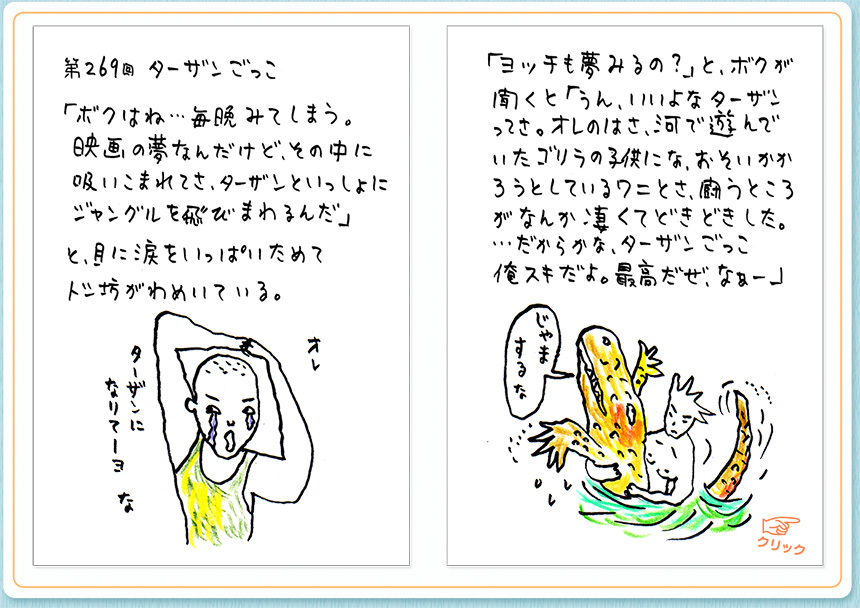 第269回 ターザンごっこ
「ボクはね…毎晩みてしまう。
映画の夢なんだけど、その中に
吸いこまれてさ、ターザンといっしょに
ジャングルを飛びまわるんだ」
と、目に涙をいっぱいためて
トン坊がわめいている。
オレ
ターザンに
なりてーヨ な
「ヨッチも夢みるの?」と、ボクが
聞くと「うん、いいよなターザン
ってさ。オレのはさ、河で遊んで
いたゴリラの子供にな、おそいかか
ろうとしているワニとさ、闘うところ
がなんか凄くてどきどきした。
…だからかな、ターザンごっこ
俺スキだよ。最高だぜ、なぁー」
じゃま
するな
クリック